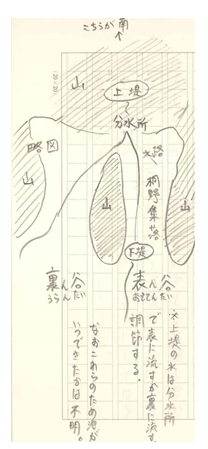 こちらが南
↑
山
上堤
分水所
略図
水路
桐野集落
山
山
下堤
裏ん谷
うらんたい
表ん谷
おもてんたい
※上堤の水は分水所
で表に流すか裏に流す
調節する。
なおこれらのため池が
いつできたかは不明。